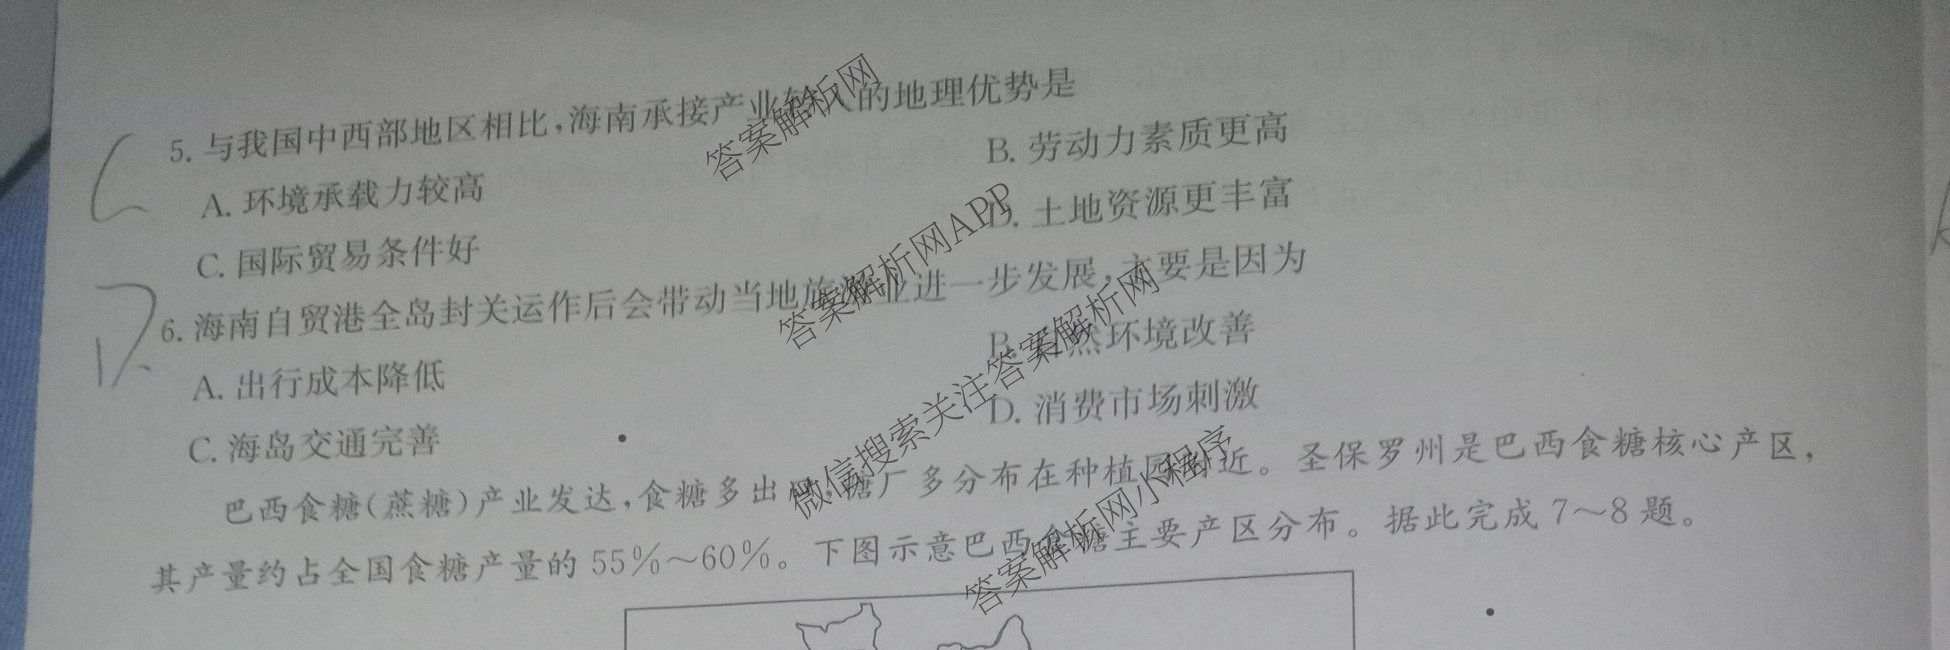 5. 与我国中西部地区相比,海南承接产业转入的地理优势是
A. 环境承载力较高
B. 劳动力素质更高
C. 国际贸易条件好
D. 土地资源更丰富
6. 海南自贸港全岛封关运作后会带动当地旅游业进一步发展,主要是因为
A. 出行成本降低
B. 自然环境改善
C. 海岛交通完善
D. 消费市场刺激
巴西食糖(蔗糖)产业发达,食糖多出口,糖厂多分布在种植园附近。圣保罗州是巴西食糖核心产区,
其产量约占全国食糖产量的 55%～60%。下图示意巴西食糖主要产区分布。据此完成 7～8 题。
C
D
答案解析网
答案解析网APP
微信搜索关注答案解析网
答案解析网小程序